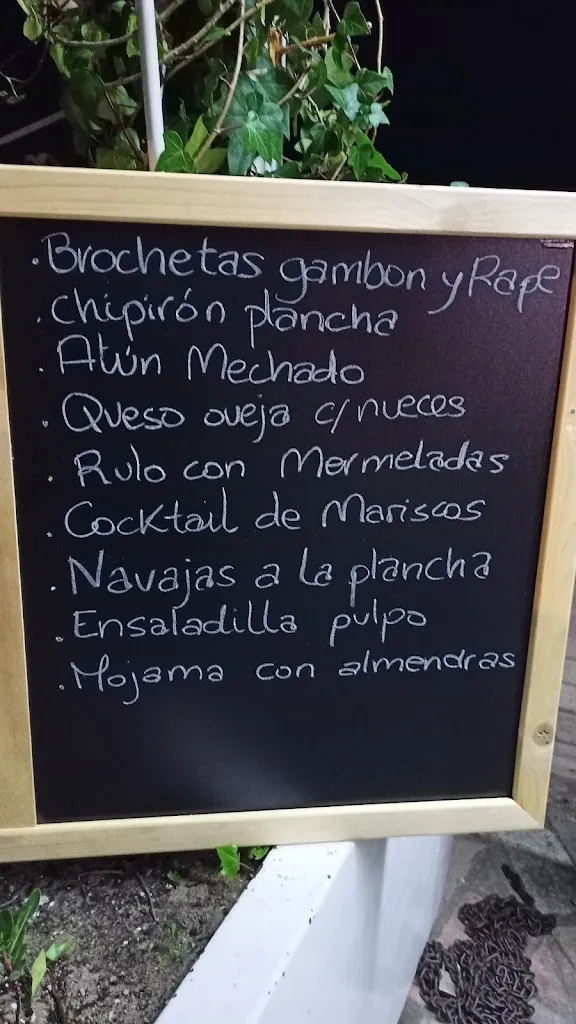 . Brochetas gambon y Rape
. chipirón plancha
. Atún Mechado
. Queso oveja c/nueces
. Rulo con Mermeladas
. Cocktail de Mariscos
. Navajas a la plancha
. Ensaladilla pulpo
. Mojama con almendras